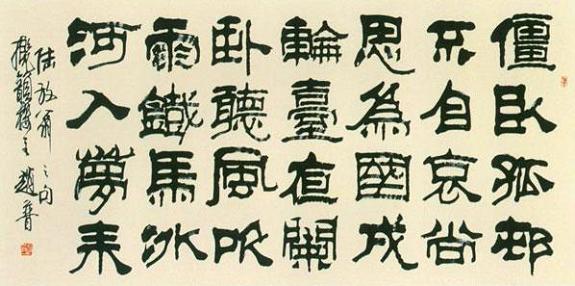 僵卧孤邨
不自哀尚
思為國戍
輪臺夜闌
卧聽風吹
雨鐵馬冰
河入夢来
陸放翁之句
樓主趙普